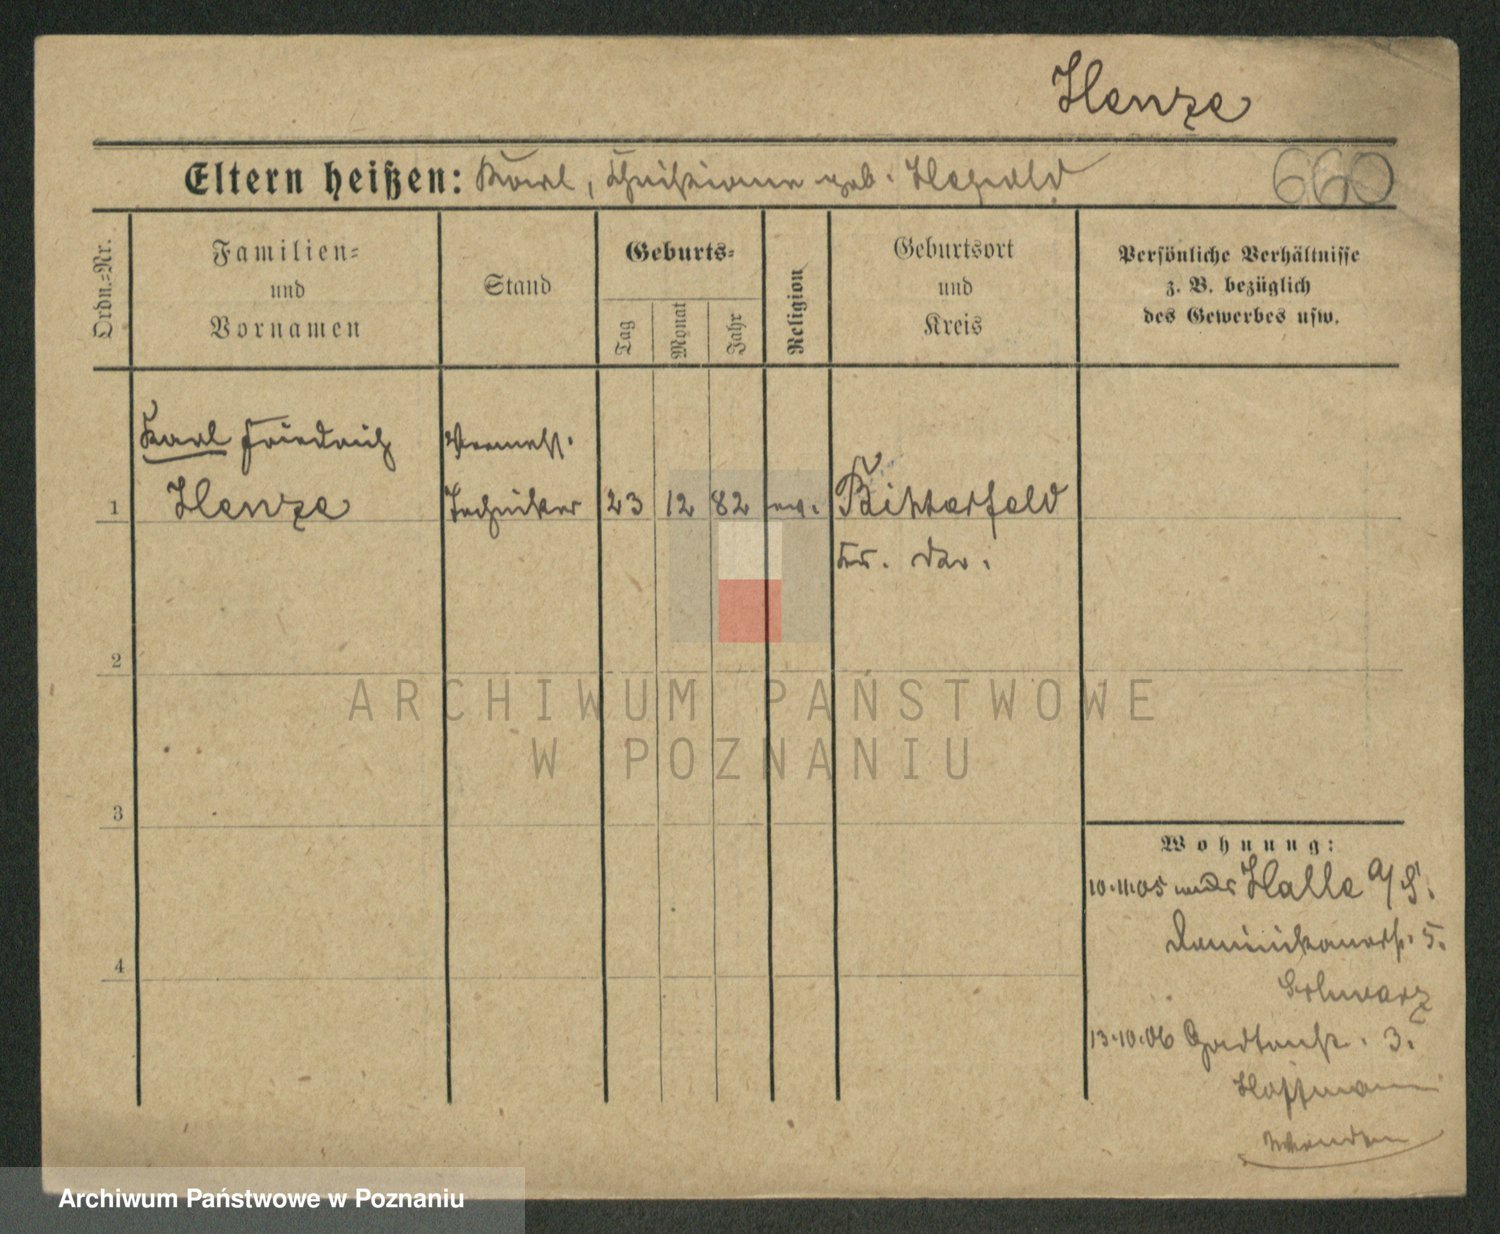 Henze
Eltern heißen: Karl, Christiane geb. Hezold
660
Ordn.-Nr.
Familien-
und
Vornamen
Stand
Geburts-
Tag
Monat
Jahr
Religion
Geburtsort
und
Kreis
Persönliche Verhältnisse
z. B. bezüglich
des Gewerbes usw.
Karl Friedrich
Henze
Vermess.
Techniker
1
23
12
82
ev.
Bitterfeld
Kr. dto.
2
ARCHIWUM PAŃSTWOWE
W POZNANIU
3
4
Wohnung:
10.11.05 Halle a/S.
Dominikanerst. 5.
Schwarz
13.10.06 3.
Hoffmann
Wenden
Archiwum Państwowe w Poznaniu